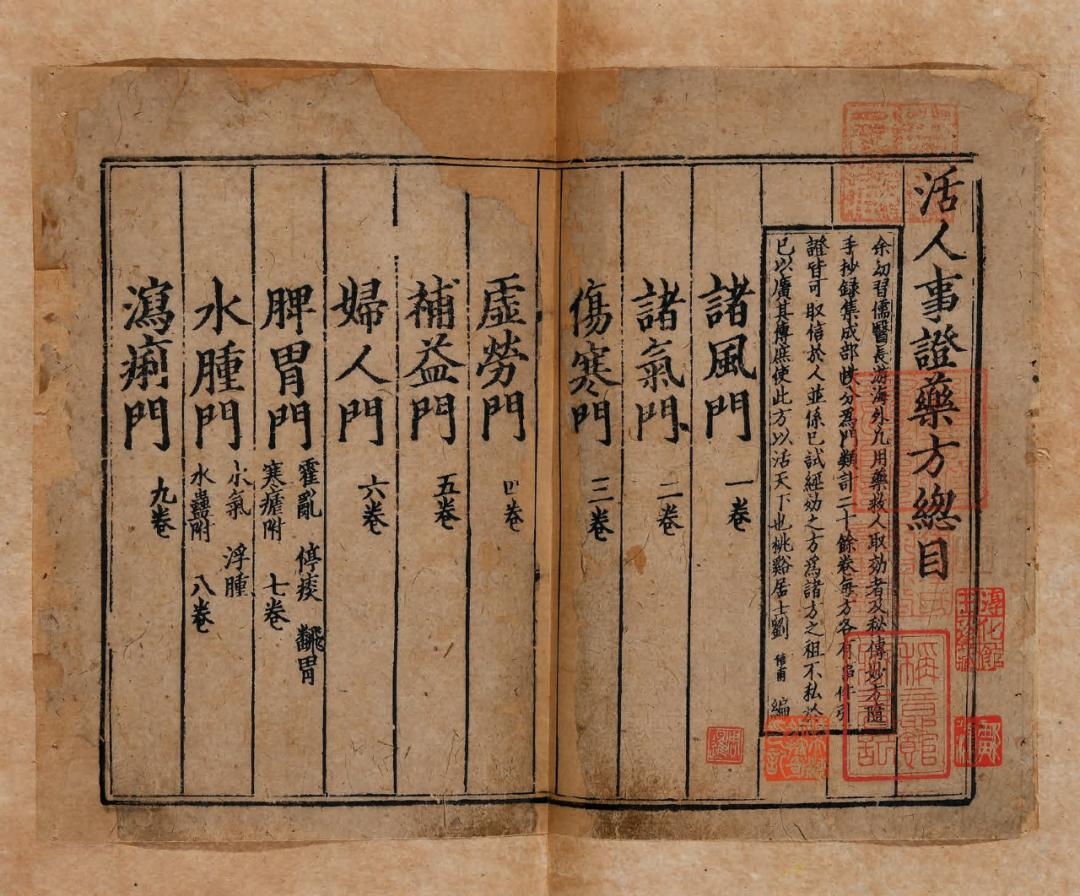 活人事證藥方總目
余幼習儒醫長游海外凡用藥救人取効者及秘傳妙方隨
手抄録集成部帙分爲門類計二十餘卷每方各有事件引
證皆可取信於人並係已試經効之方爲諸方之祖不私於
已以廣其傳庶使此方以活天下也桃谿居士劉信甫編
諸風門 一卷
諸氣門 二卷
傷寒門 三卷
虛勞門 四卷
補益門 五卷
婦人門 六卷
脾胃門 霍亂 停痰 飜胃
寒瘧附 七卷
水腫門 水氣 浮腫
水蠱附 八卷
瀉痢門 九卷